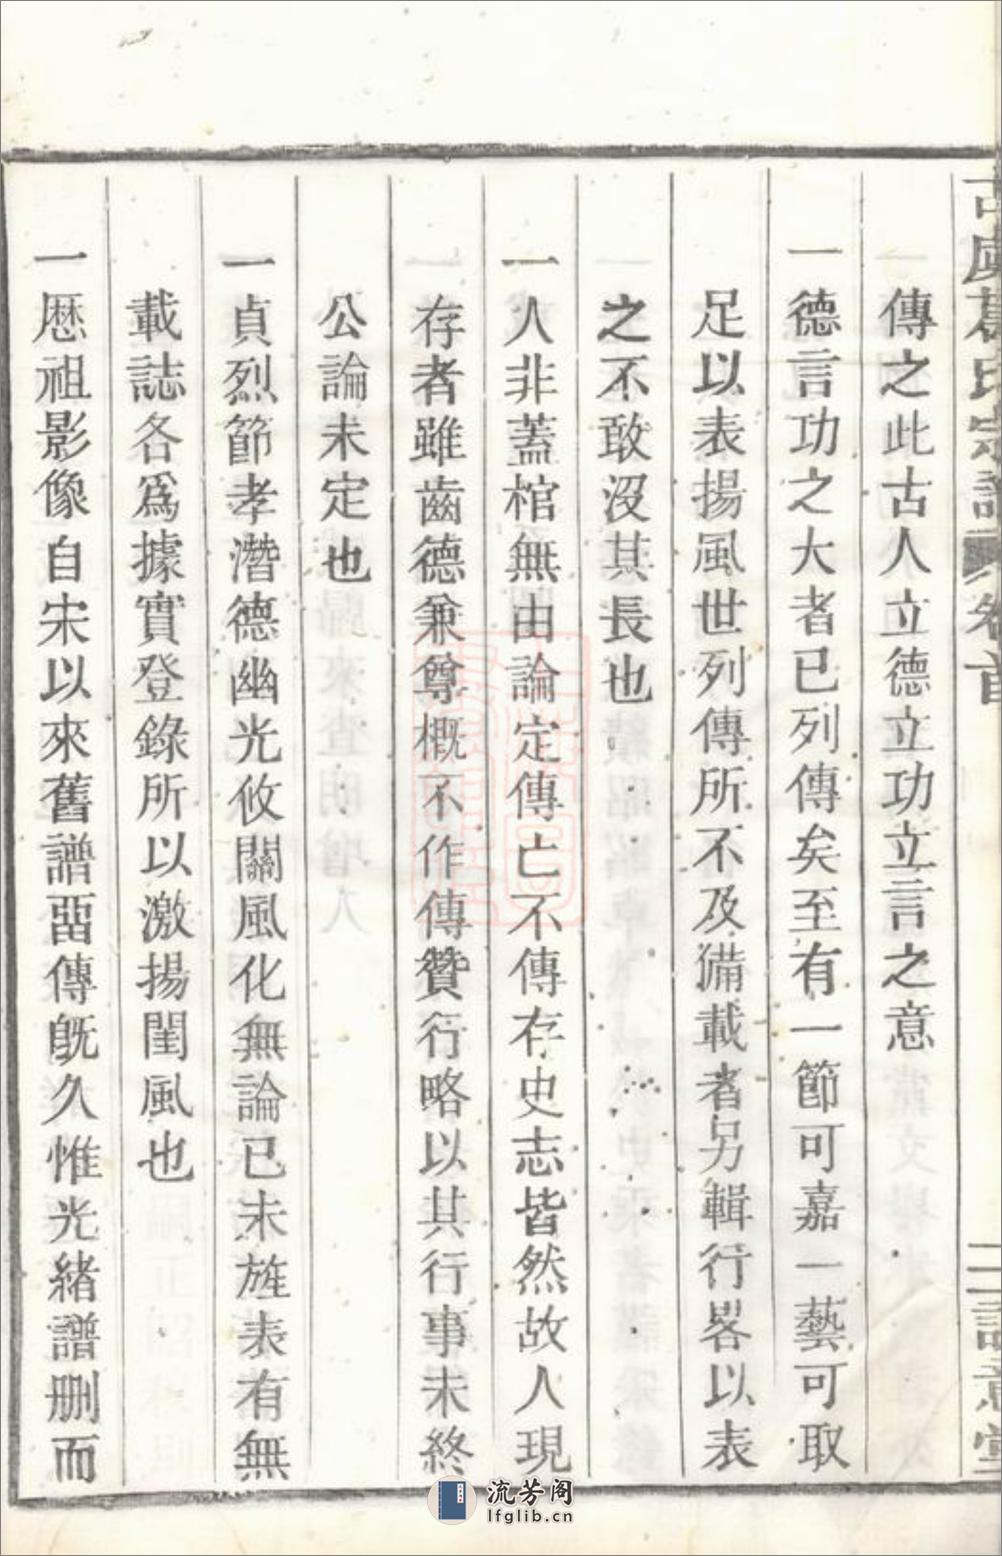 傳之此古人立德立功立言之意
一德言功之大者已列傳矣至有一節可嘉一藝可取
足以表揚風世列傳所不及備載者另輯行畧以表
之不敢沒其長也
一人非蓋棺無由論定傳亡不傳存史志皆然故人現
存者雖齒德兼尊概不作傳贊行略以其行事未終
公論未定也
一貞烈節孝潛德幽光攸關風化無論已未旌表有無
載誌各爲據實登錄所以激揚閨風也
一歷祖影像自宋以來舊譜畱傳旣久惟光緒譜刪而
流芳阁
lfglib.cn